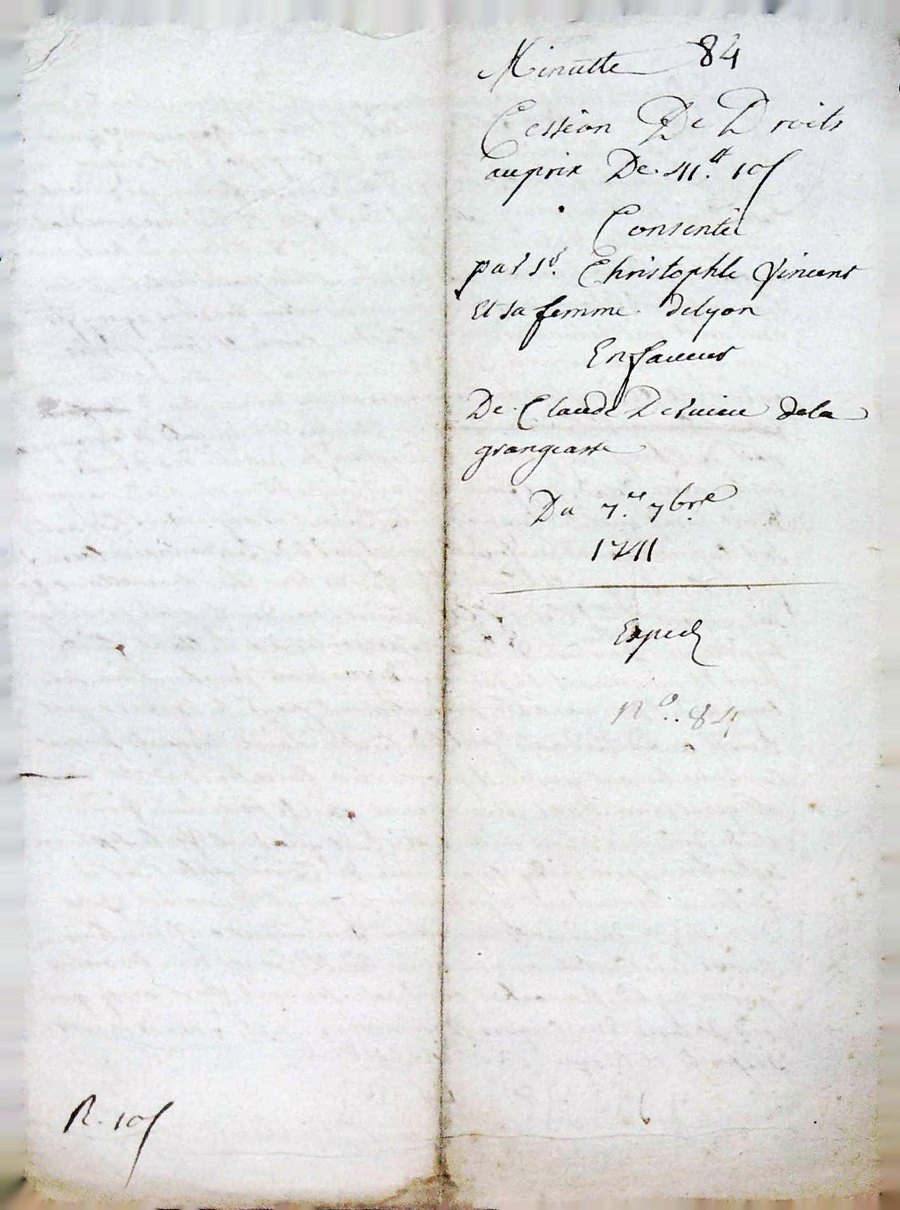 Minutte 84
Cession De Droits
auprix De 41.tt 10s
Consentie
par Sr. Christophle Vincent
Et sa femme delyon
En faveur
De Claude dela
grangeasse
Du 7.e 7bre
1741
Exped
No. 84
R. 10s